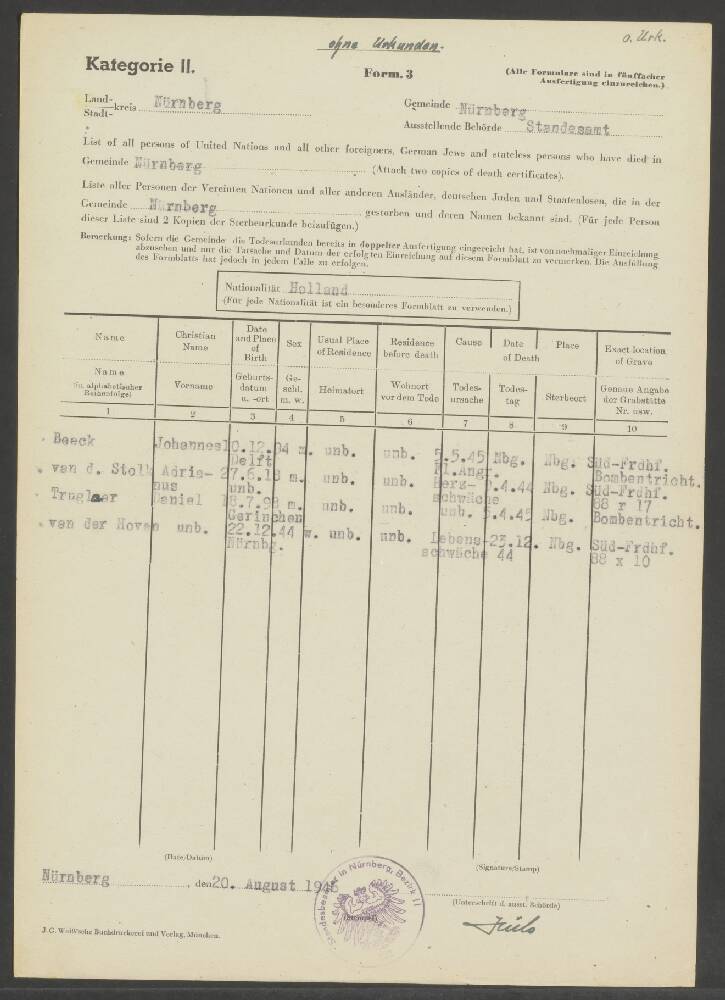 ohne Urkunden.
o. Urk.
Kategorie II.
Form. 3
(Alle Formulare sind in fünffacher
Ausfertigung einzureichen.)
Land-
Stadt- kreis Nürnberg
Gemeinde Nürnberg
Ausstellende Behörde Standesamt
List of all persons of United Nations and all other foreigners, German Jews and stateless persons who have died in
Gemeinde Nürnberg (Attach two copies of death certificates).
Liste aller Personen der Vereinten Nationen und aller anderen Ausländer, deutschen Juden und Staatenlosen, die in der
Gemeinde Nürnberg gestorben und deren Namen bekannt sind. (Für jede Person
dieser Liste sind 2 Kopien der Sterbeurkunde beizufügen.)
Bemerkung: Sofern die Gemeinde die Todesurkunden bereits in doppelter Ausfertigung eingereicht hat, ist von nochmaliger Einreichung
abzusehen und nur die Tatsache und Datum der erfolgten Einreichung auf diesem Formblatt zu vermerken. Die Ausfüllung
des Formblatts hat jedoch in jedem Falle zu erfolgen.
Nationalität Holland
(Für jede Nationalität ist ein besonderes Formblatt zu verwenden.)
Name Christian Name Date and Place of Birth Sex Usual Place of Residence Residence before death Cause Date Place of Death Exact location of Grave
Name (in alphabetischer Reihenfolge) Vorname Geburts-datum u. -ort Ge-schl. m. w. Heimatort Wohnort vor dem Tode Todes-ursache Todes-tag Sterbeort Genaue Angabe der Grabstätte Nr. usw.
1 2 3 4 5 6 7 8 9 10
Beeck Johannes 10.12.04 m. unb. unb. 5.45 Nbg. Nbg. Süd-Frdhf.
Delft Fl.Angr. Bombentricht.
van d. Stolk Adria- 27.6.18 m. unb. unb. Herz- .4.44 Nbg. Süd-Frdhf.
nus unb. schwäche 88 r 17
Daniel 18.7.98 m. unb. unb. unb. 5.4.45 Nbg. Bombentricht.
Gorinchen
van der Hoven unb. 22.12.44 w. unb. unb. Lebens- 23.12. Nbg. Süd-Frdhf.
Nürnbg. schwäche 44 88 x 10
(Date/Datum)
(Signature/Stamp)
Nürnberg, den 20. August 1946
(Unterschrift d. ausst. Behörde)
Standesbeamter in Nürnberg, Bezirk II
J. G. Weiß'sche Buchdruckerei und Verlag, München.